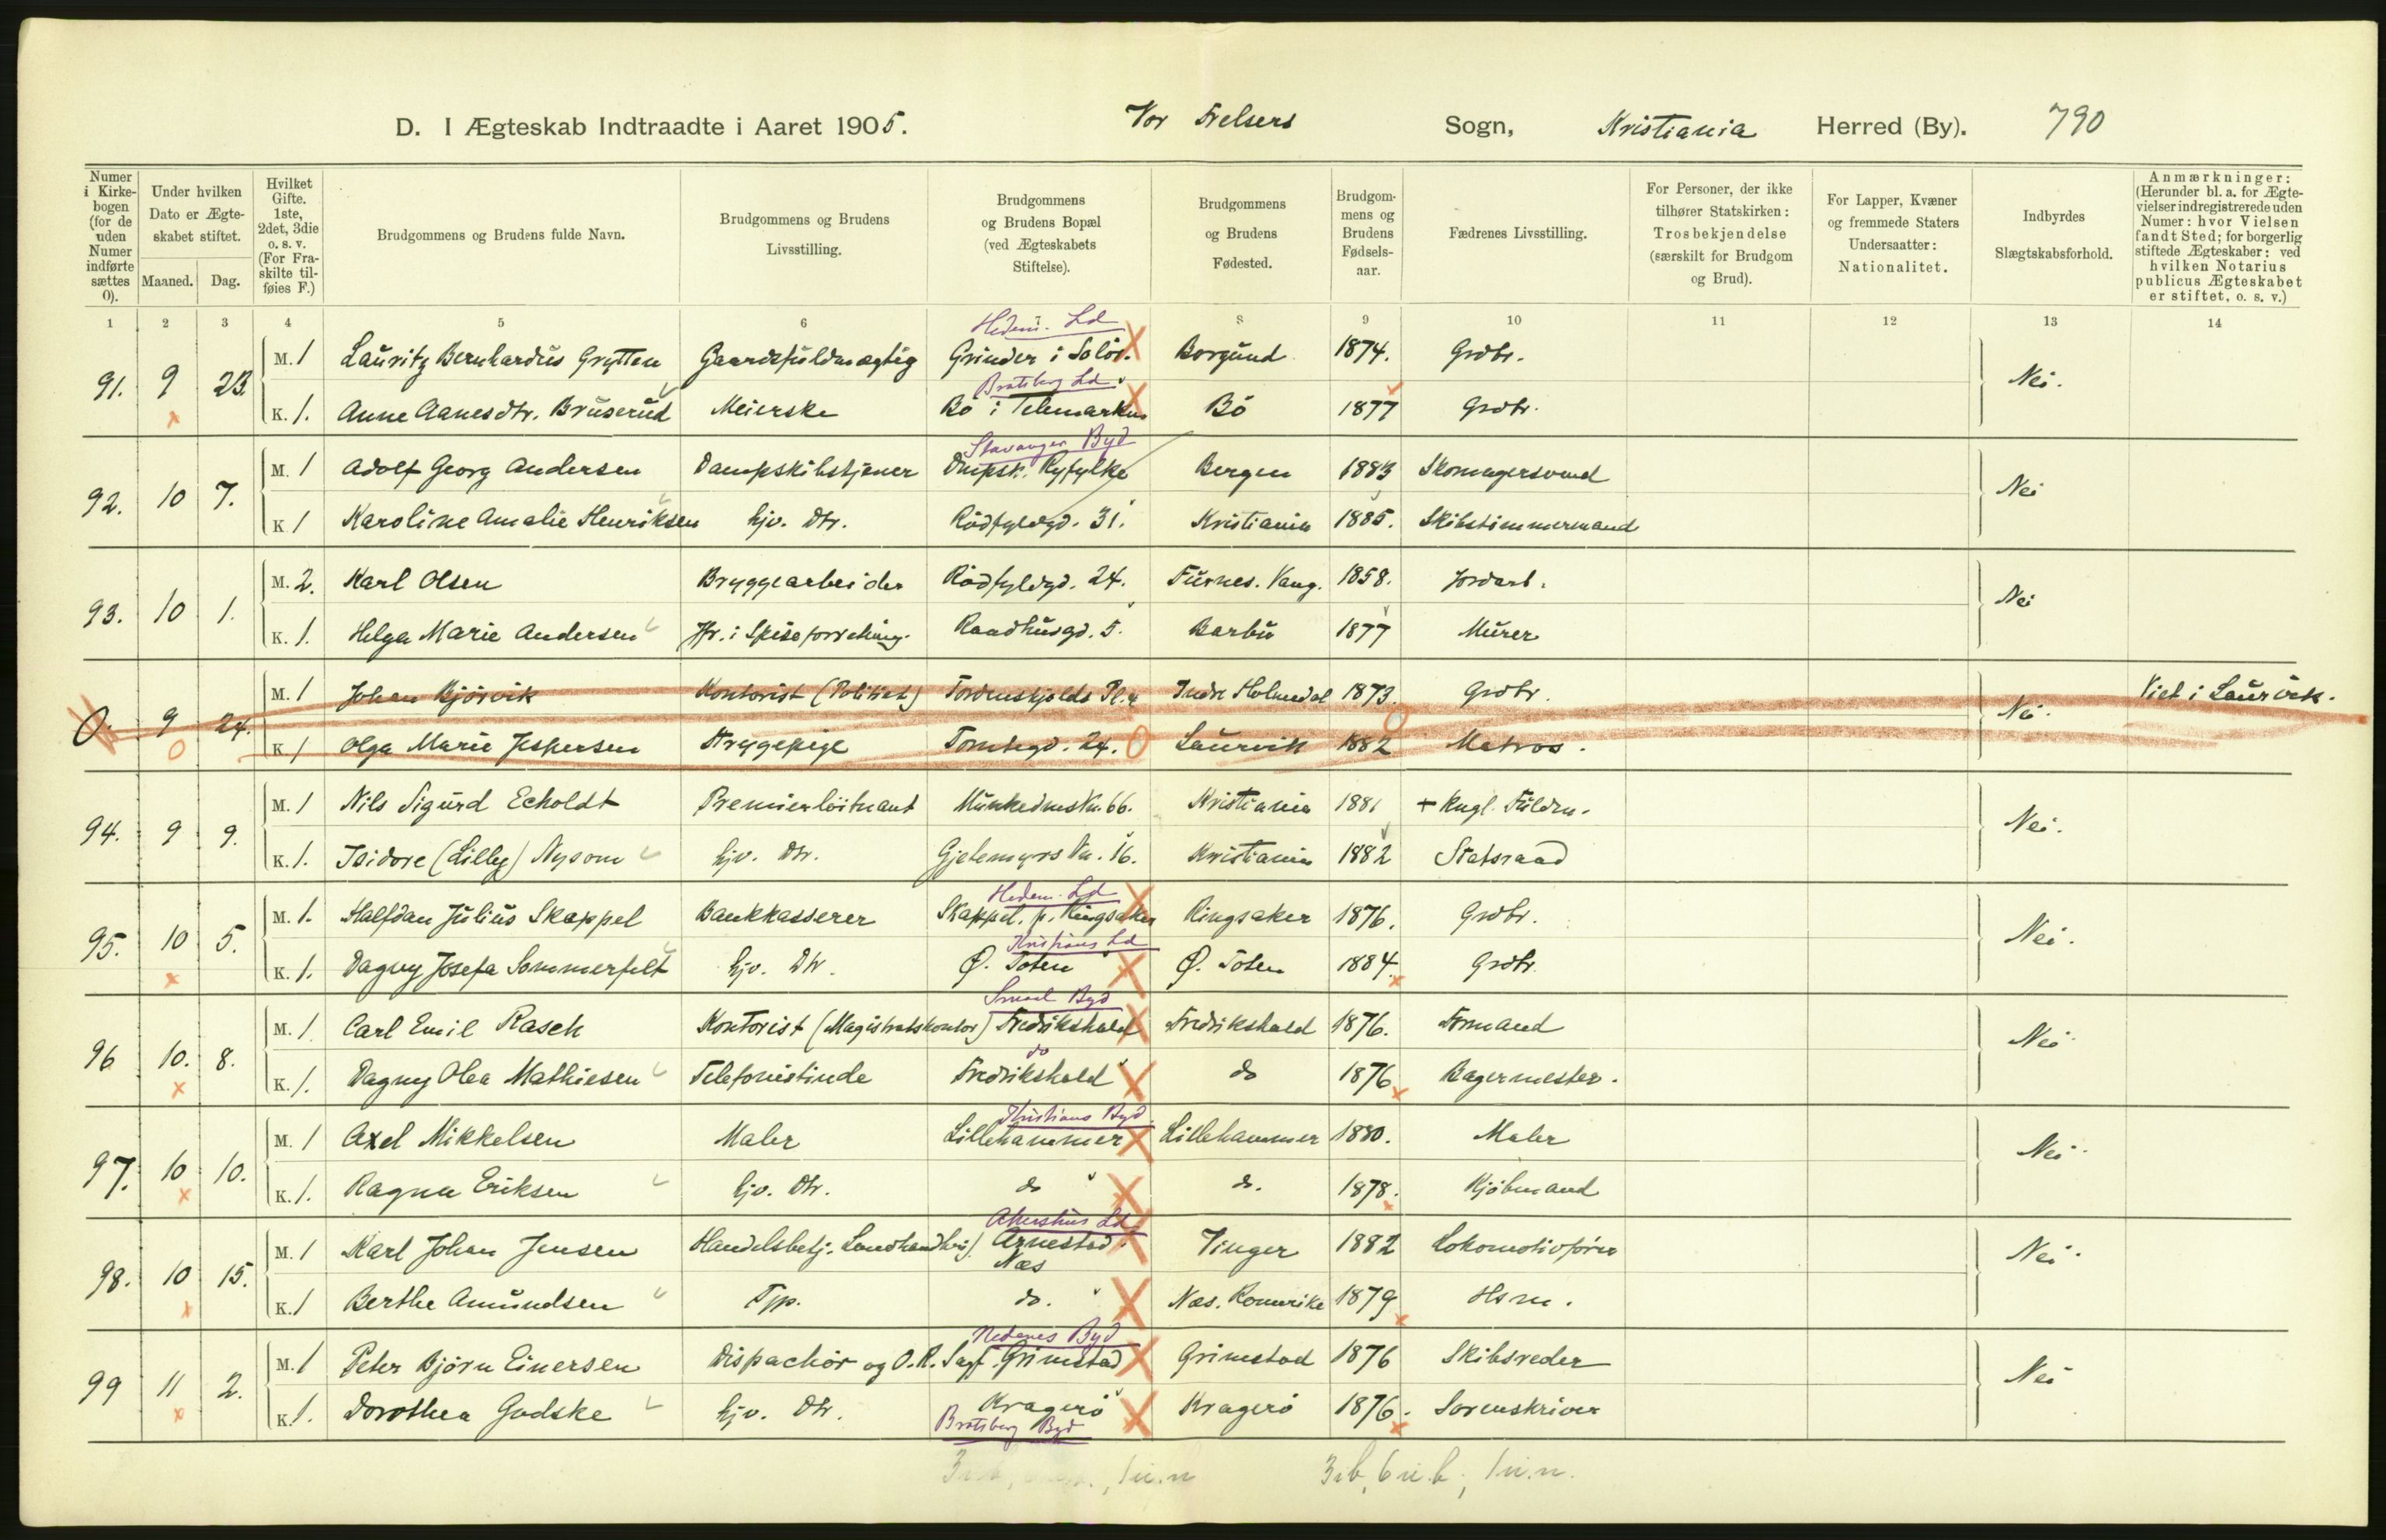 D. I Ægteskab Indtraadte i Aaret 1905. Vor Frelsers Sogn, Kristiania Herred (By). 790
Numer i Kirkebogen (for de uden Numer indførte sættes 0).
Under hvilken Dato er Ægteskabet stiftet.
Maaned. Dag.
Hvilket Gifte. 1ste, 2det, 3die o. s. v. (For Fraskilte tilføies F.)
Brudgommens og Brudens fulde Navn.
Brudgommens og Brudens Livsstilling.
Brudgommens og Brudens Bopæl (ved Ægteskabets Stiftelse).
Brudgommens og Brudens Fødested.
Brudgommens og Brudens Fødselsaar.
Fædrenes Livsstilling.
For Personer, der ikke tilhører Statskirken: Trosbekjendelse (særskilt for Brudgom og Brud).
For Lapper, Kvæner og fremmede Staters Undersaatter: Nationalitet.
Indbyrdes Slægtskabsforhold.
Anmærkninger: (Herunder bl. a. for Ægtevielser indregistrerede uden Numer: hvor Vielsen fandt Sted; for borgerlig stiftede Ægteskaber: ved hvilken Notarius publicus Ægteskabet er stiftet, o. s. v.)
1 2 3 4 5 6 8 9 10 11 12 13 14
Hedem. Ld
91. 9 23. M. 1 Lauritz Bernhardus Grytten Gaardsfuldmægtig Grinder i Solør. Borgund 1874. Grdbr. Nei.
Bratsberg Ld.
K. 1. Anne Aanesdtr. Bruserud Meierske Bö i Telemarken Bö 1877 Grdbr.
Stavanger Byd
92. 10 7. M. 1 Adolf Georg Andersen Dampskibstjener Dmpsk. Ryfylke Bergen 1883 Skomagersvend Nei
K 1 Karoline Amalie Henriksen hjv. Dtr. Rödfyldgd. 31. Kristiania 1885. Skibstimmermand
93. 10 1. M. 2. Karl Olsen Bryggearbeider Rödfyldgd. 24. Furnes. Vang. 1858. Jordarb. Nei
K. 1. Helga Marie Andersen Jfr. i Spiseforretning. Raadhusgd. 5. Barbu 1877 Murer
0. 9 24. M. 1 Johan Bjørvik Kontorist (Politiet) Tordenskjolds Pl. Indre Holmedal 1873. Grdbr. Nei. Viet i Laurvik.
K 1 Olga Marie Jespersen Strygepige Tomtegd. 24. Laurvik 1882 Matros.
94. 9 9. M. 1 Nils Sigurd Echoldt Premierlöitnant Munkedmsvn. 66. Kristiania 1881 + Kngl. Fuldm. Nei.
K. 1. Isidore (Lilly) Nysom hjv. Dtr. Gjetemyrs Vn. 16. Kristiania 1882 Statsraad
Hedem. Ld
95. 10 5. M. 1. Halfdan Julius Skappel Bankkasserer Skappel. p. Ringsaker Ringsaker 1876. Grdbr. Nei.
Kristians Ld
K. 1. Dagny Josefa Sommerfelt hjv. Dtr. Ø. Toten Ø. Toten 1884. Grdbr.
Smaal. Byd
96 10. 8. M. 1. Carl Emil Rasch Kontorist (Magistratskontor) Fredrikshald Fredrikshald 1876. Formand Nei
do
K. 1. Dagny Olea Mathiesen Telefonistinde Fredrikshald do 1876 Bagermester.
Kristians Byd.
97. 10 10. M. 1 Axel Mikkelsen Maler Lillehammer Lillehammer 1880. Maler Nei
K. 1. Ragna Eriksen hjv. Dtr. do do. 1878. Kjöbmand
Akershus Ld
98. 10 15. M. 1 Karl Johan Jensen Handelsbetj. Landhandleri) Arnestad. Næs Vinger 1882 Lokomotivförer Nei
K. 1 Berthe Amundsen Tjp. do. Næs. Romerike 1879 Hsm.
Nedenes Byd
99 11 2. M. 1 Peter Bjørn Einersen Dispachör og O. R. Sagf. Grimstad Grimstad 1876 Skibsreder Nei
K. 1. Dorothea Godske hjv. Dtr. Kragerö Kragerö 1876. Sorenskriver
Bratsberg Byd
3 i.b, 6 u.b., 1 u.n.